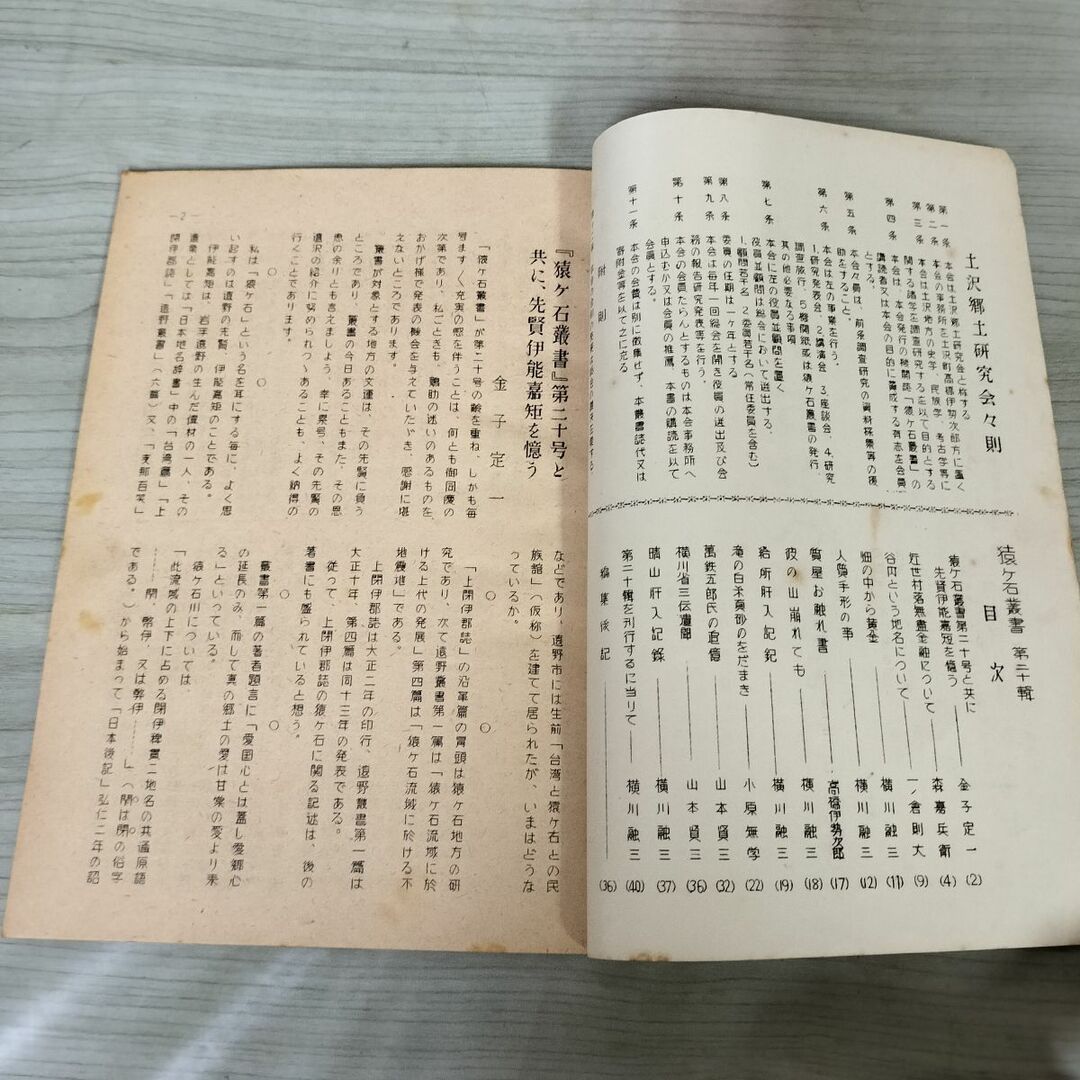 土沢郷土研究会々則
第一条 本会は土沢郷土研究会と称する
第二条 本会の事務所を土沢町高橋伊勢次郎方に置く
第三条 本会は土沢地方の史学、民族学、考古学等に
関する諸学を調査研究するを以て目的とする
第四条 本会は、本会発行の機関誌「猿ケ石叢書」の
購読者又は本会の目的に賛成する有志を会員
とする。
第五条 本会々員は、前条調査研究の資料採集等の後
助をすること。
第六条 本会は左の事業を行う。
1.研究発表会、2.講演会、3.座談会、4.研究
調査旅行、5.機関紙或は猿ケ石叢書の発行、
其の他必要なる事項
第七条 本会に左の役員並顧問を置く
役員並顧問は総会において選出する。
1.顧問若干名 2.委員若干名(常任委員を含む)
委員の任期は一ケ年とする
第八条 本会は毎年一回総会を開き役員の選出及び会
務の報告研究発表等を行う。
第九条 本会の会員たらんとするものは本会事務所へ
申込むか又は会員の推薦、本書の購読を以て
会員とする。
第十条 本会の会費は別に徴集せず、本叢書誌代又は
寄附金等を以て之に充る
第十一条
附則
猿ケ石叢書 第二十輯
目次
猿ケ石叢書第二十号と共に
先賢伊能嘉矩を憶う 金子定一 (2)
近世村落無盡金融について 森嘉兵衛 (4)
谷内という地名について 一ノ倉則文 (9)
畑の中から黄金 横川融三 (11)
人質手形の事 横川融三 (12)
質屋お触れ書 高橋伊勢次郎 (17)
彼の山崩れても 横川融三 (18)
給所肝入記録 横川融三 (19)
滝の白糸真砂のをだまき 小原無学 (22)
萬鉄五郎氏の追憶 山本賢三 (32)
横川省三伝遺聞 山本賢三 (36)
晴山肝入記錄 横川融三 (37)
第二十輯を刊行するに当りて 横川融三 (40)
編集後記 (36)
—2—
『猿ケ石叢書』第二十号と
共に、先賢伊能嘉矩を憶う
金子定一
「猿ケ石叢書」が第二十号の齢を重ね、しかも毎
号ます〱充実の感を伴うことは、何とも御同慶の
次第であり、私ごときも、鶏肋の迷いのあるものを、
おかげ様で発表の機会を与えていたゞき、感謝に堪
えないところであります。
叢書が対象とする地方の文運は、その先賢に負う
ところであり、叢書の今日あることもまた、その恩
恵の余りとも言えましょう。幸に累号、その先賢の
遺沢の紹介に努められつゝあることも、よく納得の
行くことであります。
〇
私は「猿ケ石」という名を耳にする毎に、よく思
い起すのは遠野の先賢、伊能嘉矩のことである。
伊能嘉矩は、岩手遠野の生んだ偉材の一人、その
遺業としては「日本地名辞書」中の「台湾篇」「上
閉伊郡誌」「遠野叢書」(六篇)又、「支那百笑」
などであり、遠野市には生前「台湾と猿ケ石との民
族館」(仮称)を建てて居られたが、いまはどうな
っているか。
〇 〇
「上閉伊郡誌」の沿革篇の冐頭は猿ケ石地方の研
究であり、次て遠野叢書第一篇は「猿ケ石流域に於
ける上代の発展」第四篇は「猿ケ石流域に於ける不
地震地」である。
上閉伊郡誌は大正二年の印行、遠野叢書第一篇は
大正十年、第四篇は同十三年の発表である。
従って、上閉伊郡誌の猿ケ石に関る記述は、後の
著書にも盛られていると想う。
〇 〇
叢書第一篇の著者題言に「愛国心とは蓋し愛郷心
の延長のみ、而して真の郷土の愛は甘棠の愛より来
る」といっている。
猿ケ石川については
「此流域の上下に占める閉伊稗貫二地名の共通原語
……閇幣伊、又は弊伊……」(閇は閉の俗字
である。)から始まって「日本後記」弘仁二年の詔